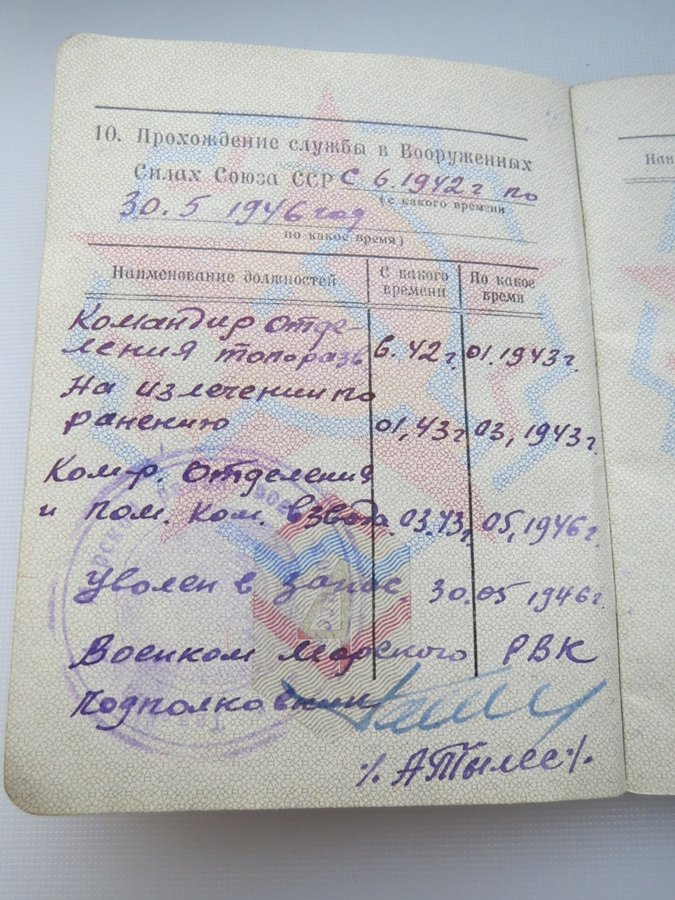 10. Прохождение службы в Вооруженных
Силах Союза ССР С 6.1942г по
(с какого времени
30.5 1946 год
по какое время)
Наименование должностей С какого времени По какое время
Командир отде-
ления топоразв 6.42г. 01.1943г.
На излечении по
ранению 01,43г 03,1943г.
Ком-р. отделения
и пом. ком. взвода. 03.43г. 05,1946г.
Уволен в запас 30.05 1946г.
Военком Марского РВК
Подполковник
/. А Тылес /.